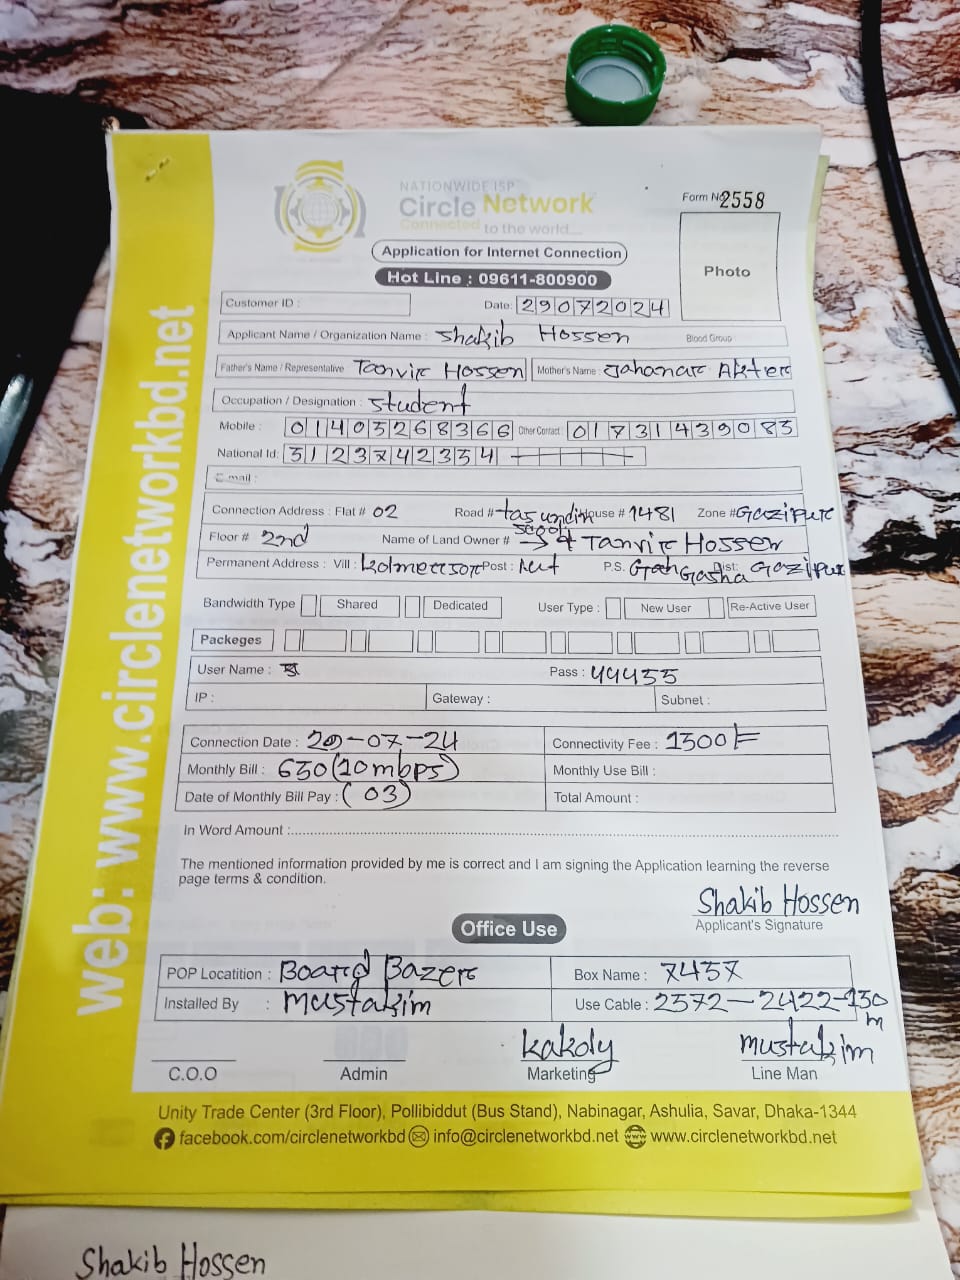 NATIONWIDE ISP
Circle Network
Connected to the world....
Form No 2558
Application for Internet Connection
Photo
Hot Line : 09611-800900
Customer ID : Date: 29072024
Applicant Name / Organization Name : Shakib Hossen Blood Group
Father's Name / Representative Tanvir Hossen Mother's Name : Jahanar Akter
Occupation / Designation : Student
Mobile : 01403268366 Other Contact : 01731439083
National Id: 3123742334
E-mail :
Connection Address : Flat # 02 Road # House # 1481 Zone # Gazipur
Floor # 2nd Name of Land Owner # Tanvir Hossen
Permanent Address : Vill : Post : P.S. Gasha Dist: Gazipur
Bandwidth Type Shared Dedicated User Type : New User Re-Active User
Packeges
User Name : Pass : 44455
IP : Gateway : Subnet :
Connection Date : 29-07-24 Connectivity Fee : 1500/=
Monthly Bill : 630 (10mbps) Monthly Use Bill :
Date of Monthly Bill Pay : (03) Total Amount :
In Word Amount :
The mentioned information provided by me is correct and I am signing the Application learning the reverse
page terms & condition.
Shakib Hossen
Applicant's Signature
Office Use
POP Locatition : Board Bazer Box Name : 7437
Installed By : Mustakim Use Cable : 2572-2422-150m
kakoly mustakim
C.O.O Admin Marketing Line Man
Unity Trade Center (3rd Floor), Pollibiddut (Bus Stand), Nabinagar, Ashulia, Savar, Dhaka-1344
facebook.com/circlenetworkbd info@circlenetworkbd.net www.circlenetworkbd.net
web: www.circlenetworkbd.net
Shakib Hossen